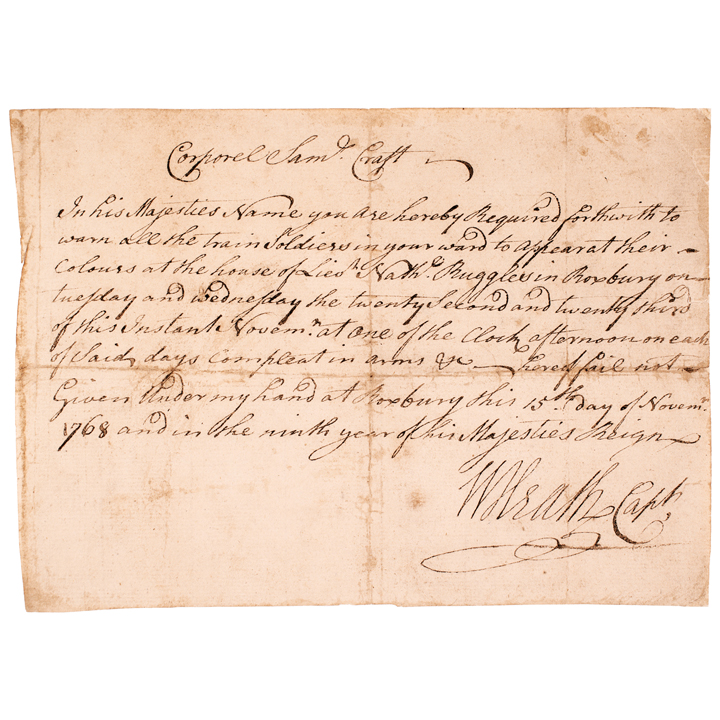 Corporel Sam.d Craft
In his Majesties Name you are hereby Required forthwith to
warn all the train Soldiers in your ward to appear at their
Colours at the house of Lies.t Nath.l Ruggles in Roxbury on
tuesday and wednesday the twenty Second and twenty third
of this Instant Novem.r at one of the Clock afternoon on each
of Said days Compleat in arms &c hereof fail not
Given Under my hand at Roxbury this 15.th day of Novem.r
1768 and in the ninth year of his Majesties Reign
W Heath Capt.